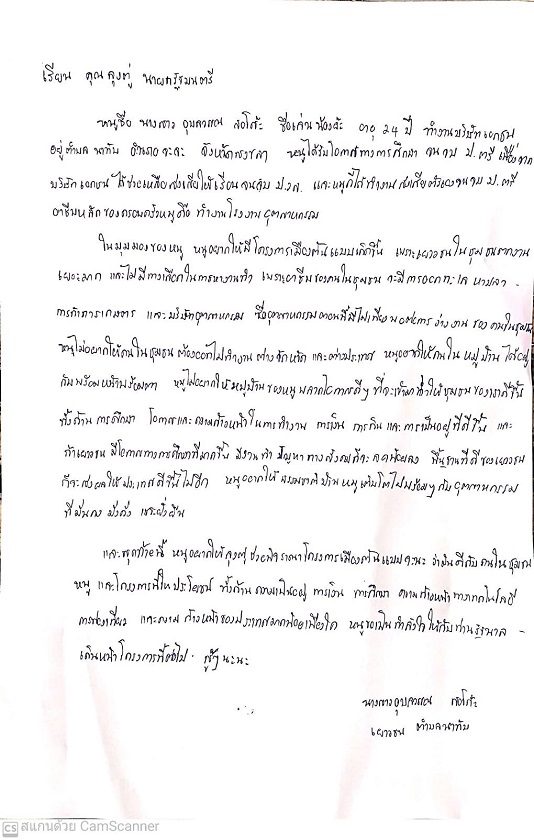 เรียน คุณลุงตู่ นายกรัฐมนตรี
หนูชื่อ นางสาว อุบลวรรณ ชื่อเล่นน้องดะ อายุ 24 ปี ทำงานบริษัทเอกชน
อยู่ตำบล นาทับ อำเภอ จะนะ จังหวัดสงขลา หนูได้รับโอกาสทางการศึกษา จนจบ ป.ตรี เนื่องจาก
บริษัทเอกชน ได้ช่วยเหลือส่งเสียให้เรียนจนจบ ป.วส. และหนูก็ได้ทำงานส่งเสียตัวเองจนจบ ป.ตรี
อาชีพหลักของครอบครัวหนูคือ ทำงานโรงงานอุตสาหกรรม
ในมุมมองของหนู หนูอยากให้มีโครงการเมืองต้นแบบเกิดขึ้น เพราะเยาวชนในชุมชนตกงาน
เยอะมาก และไม่มีทางเลือกในการหางานทำ เพราะอาชีพของคนในชุมชน จะมีการออกทะเล หาปลา -
การทำการเกษตร และบริษัทอุตสาหกรรม ซึ่งอุตสาหกรรมตอนนี้มีไม่เพียงพอต่อการจ้างงาน ของคนในชุมชน
หนูไม่อยากให้คนในชุมชน ต้องออกไปทำงาน ต่างจังหวัด และต่างประเทศ หนูอยากให้คนใน หมู่บ้าน ได้อยู่
กันพร้อมหน้าพร้อมตา หนูไม่อยากให้หมู่บ้านของหนู พลาดโอกาสดีๆ ที่จะเข้ามาทำให้ชุมชนของเราดีขึ้น
ทั้งด้าน การศึกษา โอกาสและความก้าวหน้าในการทำงาน การเงิน การกินและการเป็นอยู่ที่ดีขึ้น และ
ถ้าเยาวชน มีโอกาสทางการศึกษาที่มากขึ้น มีงานทำ ปัญหาทางสังคมก็จะลดน้อยลง พื้นฐานที่ดีของเยาวชน
ก็จะส่งผลให้ประเทศดีขึ้นไปอีก หนูอยากให้ บ้านหนูเติบโตไปพร้อมๆ กับอุตสาหกรรม
ที่มั่นคง มั่งคั่ง และยั่งยืน
และสุดท้ายนี้ หนูอยากให้ลุงตู่ ช่วยพิจารณาโครงการเมืองต้นแบบจะนะ ว่ามันดีกับคนในชุมชน
หนู และโครงการนี้ให้ประโยชน์ ทั้งด้านความเป็นอยู่ การเงิน การศึกษา ความก้าวหน้าทางเทคโนโลยี
การท่องเที่ยว และความก้าวหน้าของประเทศมากน้อยเพียงใด หนูขอเป็นกำลังใจให้กับท่านรัฐบาล -
เดินหน้าโครงการนี้ต่อไป. สู้ๆ นะนะ
นางสาวอุบลวรรณ
เยาวชน ตำบลนาทับ
CS สแกนด้วย CamScanner